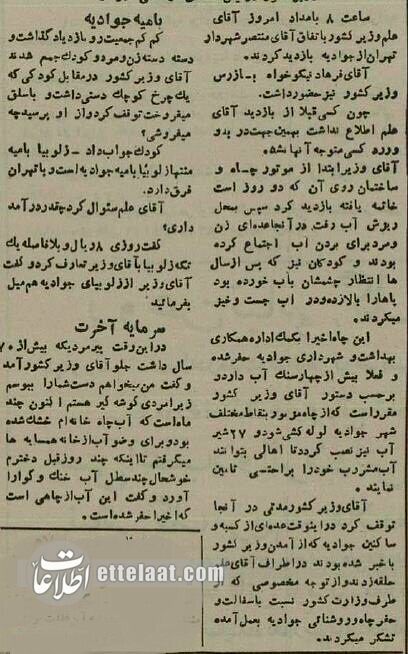 ساعت ۸ بامداد امروز آقای
علم وزیر کشور باتفاق آقای منتصر شهردار
تهران از جوادیه بازدید کردند.
آقای فرهاد نیکوخواه بازرس
وزیر کشور نیز حضور داشت.
چون کسی قبلا از بازدید آقای
علم اطلاع نداشت بهمین جهت در بدو
ورود کسی متوجه آنها نشد.
آقای وزیر ابتدا از موتور چاه و
ساختمان روی آن که دو روز است
خاتمه یافته بازدید کرد سپس بمحل
ریزش آب رفت در آنجا عده‌ای زن
ومرد برای بردن آب اجتماع کرده
بودند و کودکان نیز که پس از سال
ها انتظار چشمشان بآب خورده بود
پاها را بالا زده و در آب جست و خیز
میکردند.
این چاه اخیرا بکمک اداره همکاری
بهداشت و شهرداری جوادیه حفر شده
و فعلا بیش از چهار سنگ آب دارد و
برحسب دستور آقای وزیر کشور
مقرر است که از چاه مزبور بنقاط مختلف
شهر جوادیه لوله کشی شود و ۲۷ شیر
آب نیز نصب گردد تا اهالی بتوانند
آب مشرب خود را براحتی تامین
نمایند.
آقای وزیر کشور مدتی در آنجا
توقف کرد در اینوقت عده‌ای از کسبه و
ساکنین جوادیه که از آمدن وزیر کشور
با خبر شده بودند در اطراف آقای علم
حلقه زدند و از توجه مخصوصی که از
طرف وزارت کشور نسبت باسفالت و
حفر چاه و روشنائی جوادیه بعمل آمده
تشکر میکردند.
بامیه جوادیه
کم کم جمعیت رو بازدیاد گذاشت و
دسته دسته زن و مرد و کودک جمع شدند
آقای وزیر کشور در مقابل کودکی که
یک چرخ کوچک دستی داشت و باسلق
میفروخت توقف کرد و از او پرسید چه
میفروشی؟
کودک جواب داد - زلوبیا بامیه
منتها زلوبیا بامیه جوادیه است و با تهران
فرق دارد.
آقای علم سئوال کرد چقدر درآمد
داری؟
گفت روزی ۸ ریال و بلافاصله یک
تکه زلوبیا بآقای وزیر تعارف کرد و گفت
آقای وزیر از زلوبیای جوادیه هم میل
بفرمائید.
سرمایه آخرت
در این وقت پیرمردیکه بیش از ۷۰
سال داشت جلو آقای وزیر کشور آمد
و گفت من میخواهم دست شما را ببوسم
زیرا مردی گوشه گیر هستم اکنون چند
ماه است که آب چاه خانه‌ام خشک شده
بود و برای وضو آب از خانه همسایه ها
میگرفتم تا اینکه چند روز قبل دخترم
خوشحال چند سطل آب خنک و گوارا
آورد و گفت این آب از چاهی است
که اخیرا حفر شده است.
اطلاعات
ettelaat.com